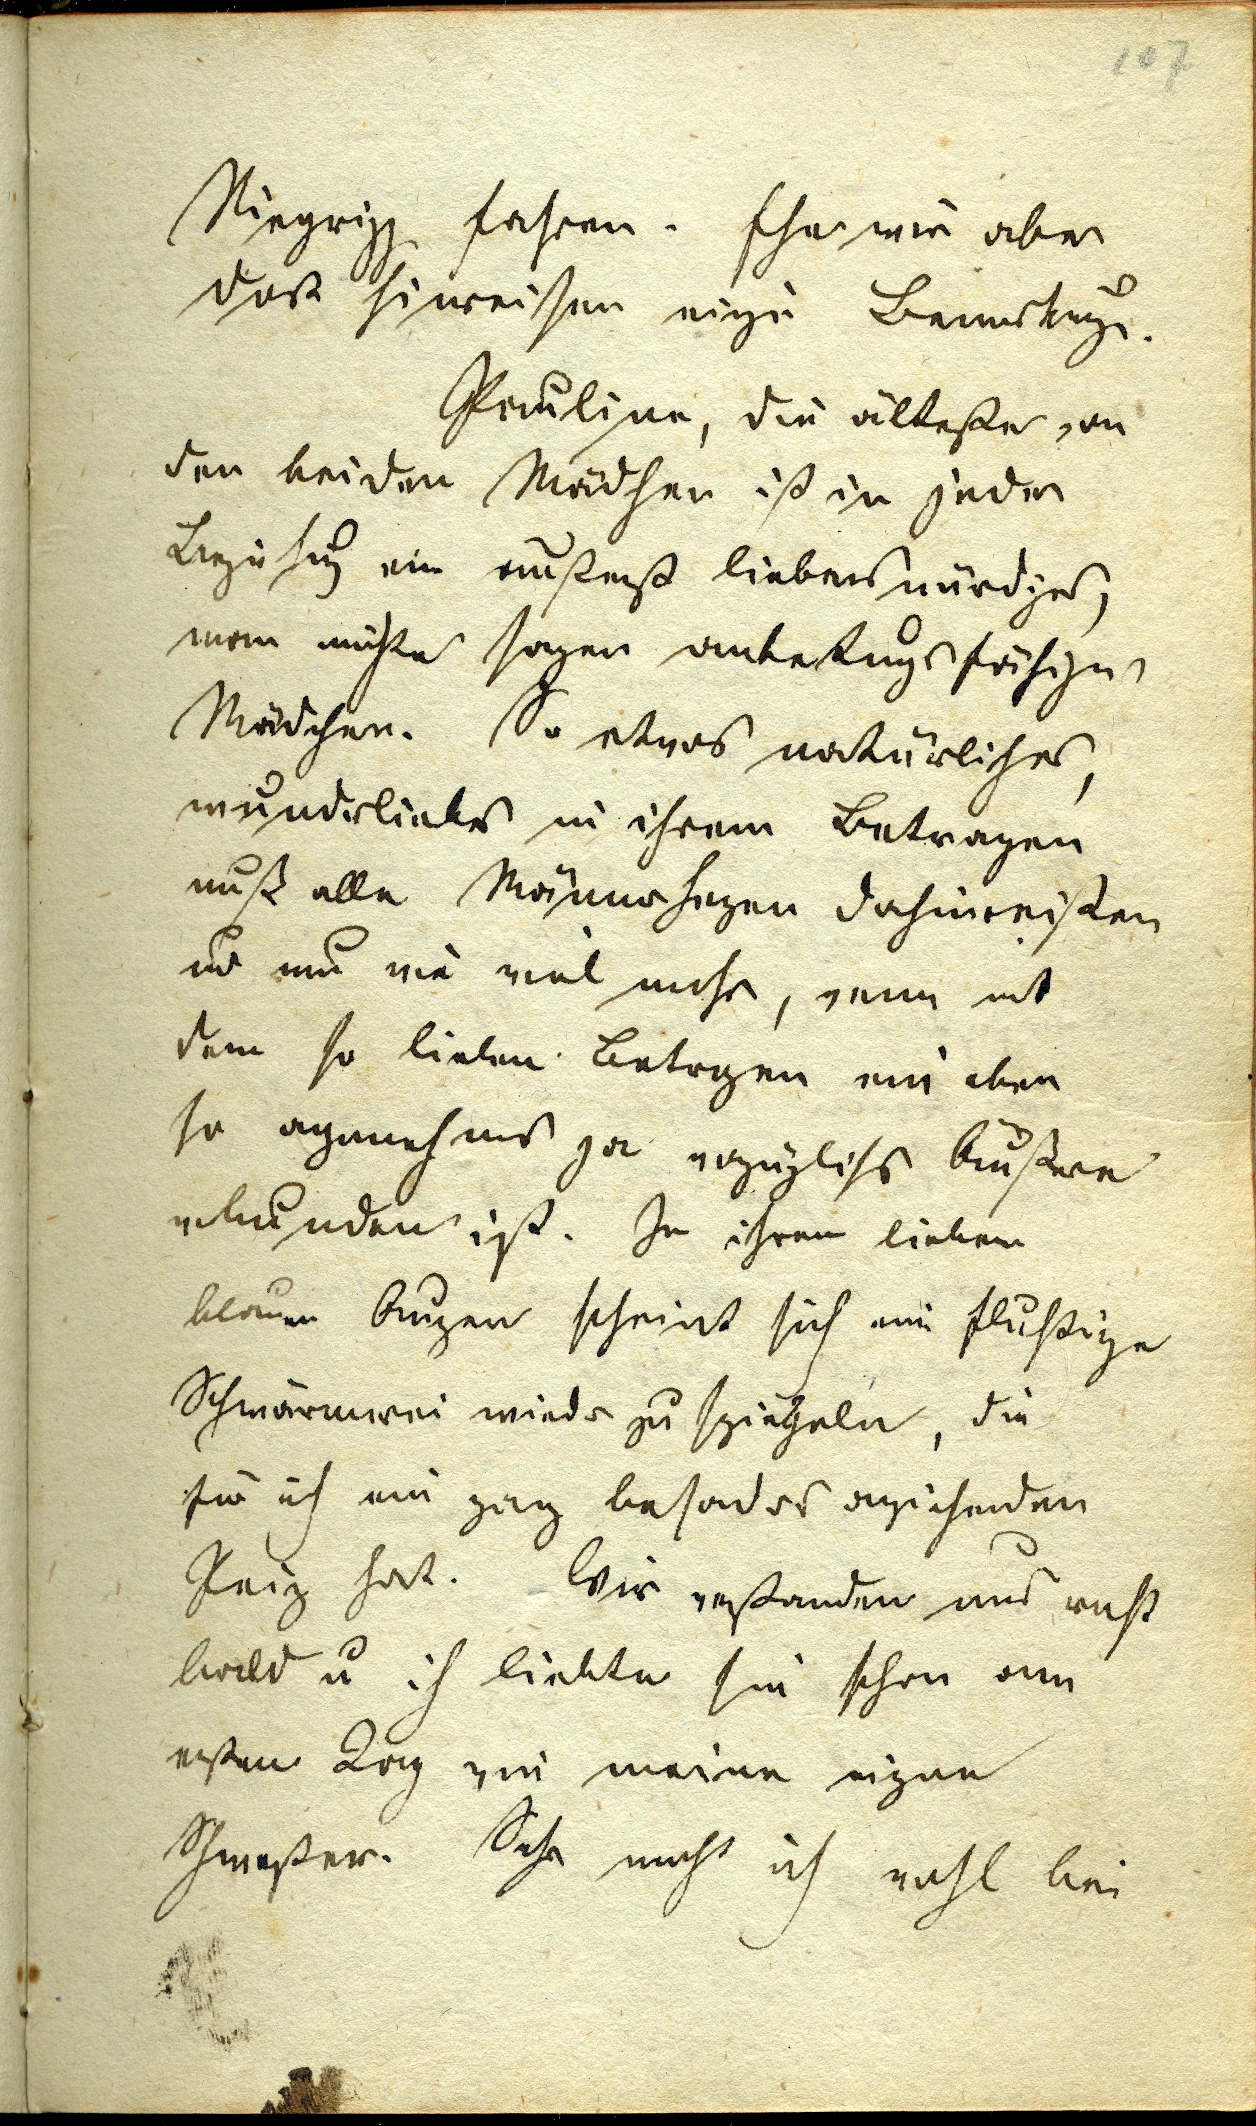 107
Niegripp fahren. Ehe wir aber
dort hinreisen einge Bemerkunge.
Pauline, die älteste von
den beiden Mädchen ist in jeder
Beziehung ein äußerst liebenswürdges,
man möchte sagen anbetungsfähiges
Mädchen. So etwas natürliches,
wunderliebes in ihrem Betragen
muß alle Männerherzen dahinreißen
und nun wie viel mehr, wenn mit
dem so lieben Betragen ein eben
so agenehmes ja vozüglichs Äußere
vebunden ist. In ihrem lieben
blauen Augen scheint sich eine
Schwärmerei wieder zu spiegeln, die
für ich ein ganz besoders aziehenden
Reiz hat. Wir verstanden uns recht
bald u ich liebte sie schon am
ersten Tag wie meine eigene
Schwester. Sehr mocht ich wohl bei